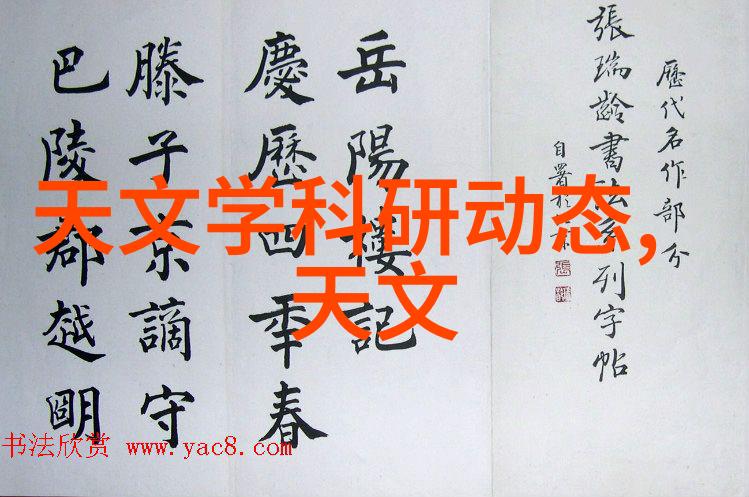 歷代名作部分
張瑞齡書法系列字帖
自署於
岳陽樓記
慶歷四年春
滕子京謫守
巴陵郡越明
天文学科研动态,
天文
书法欣赏 www.yac8.com